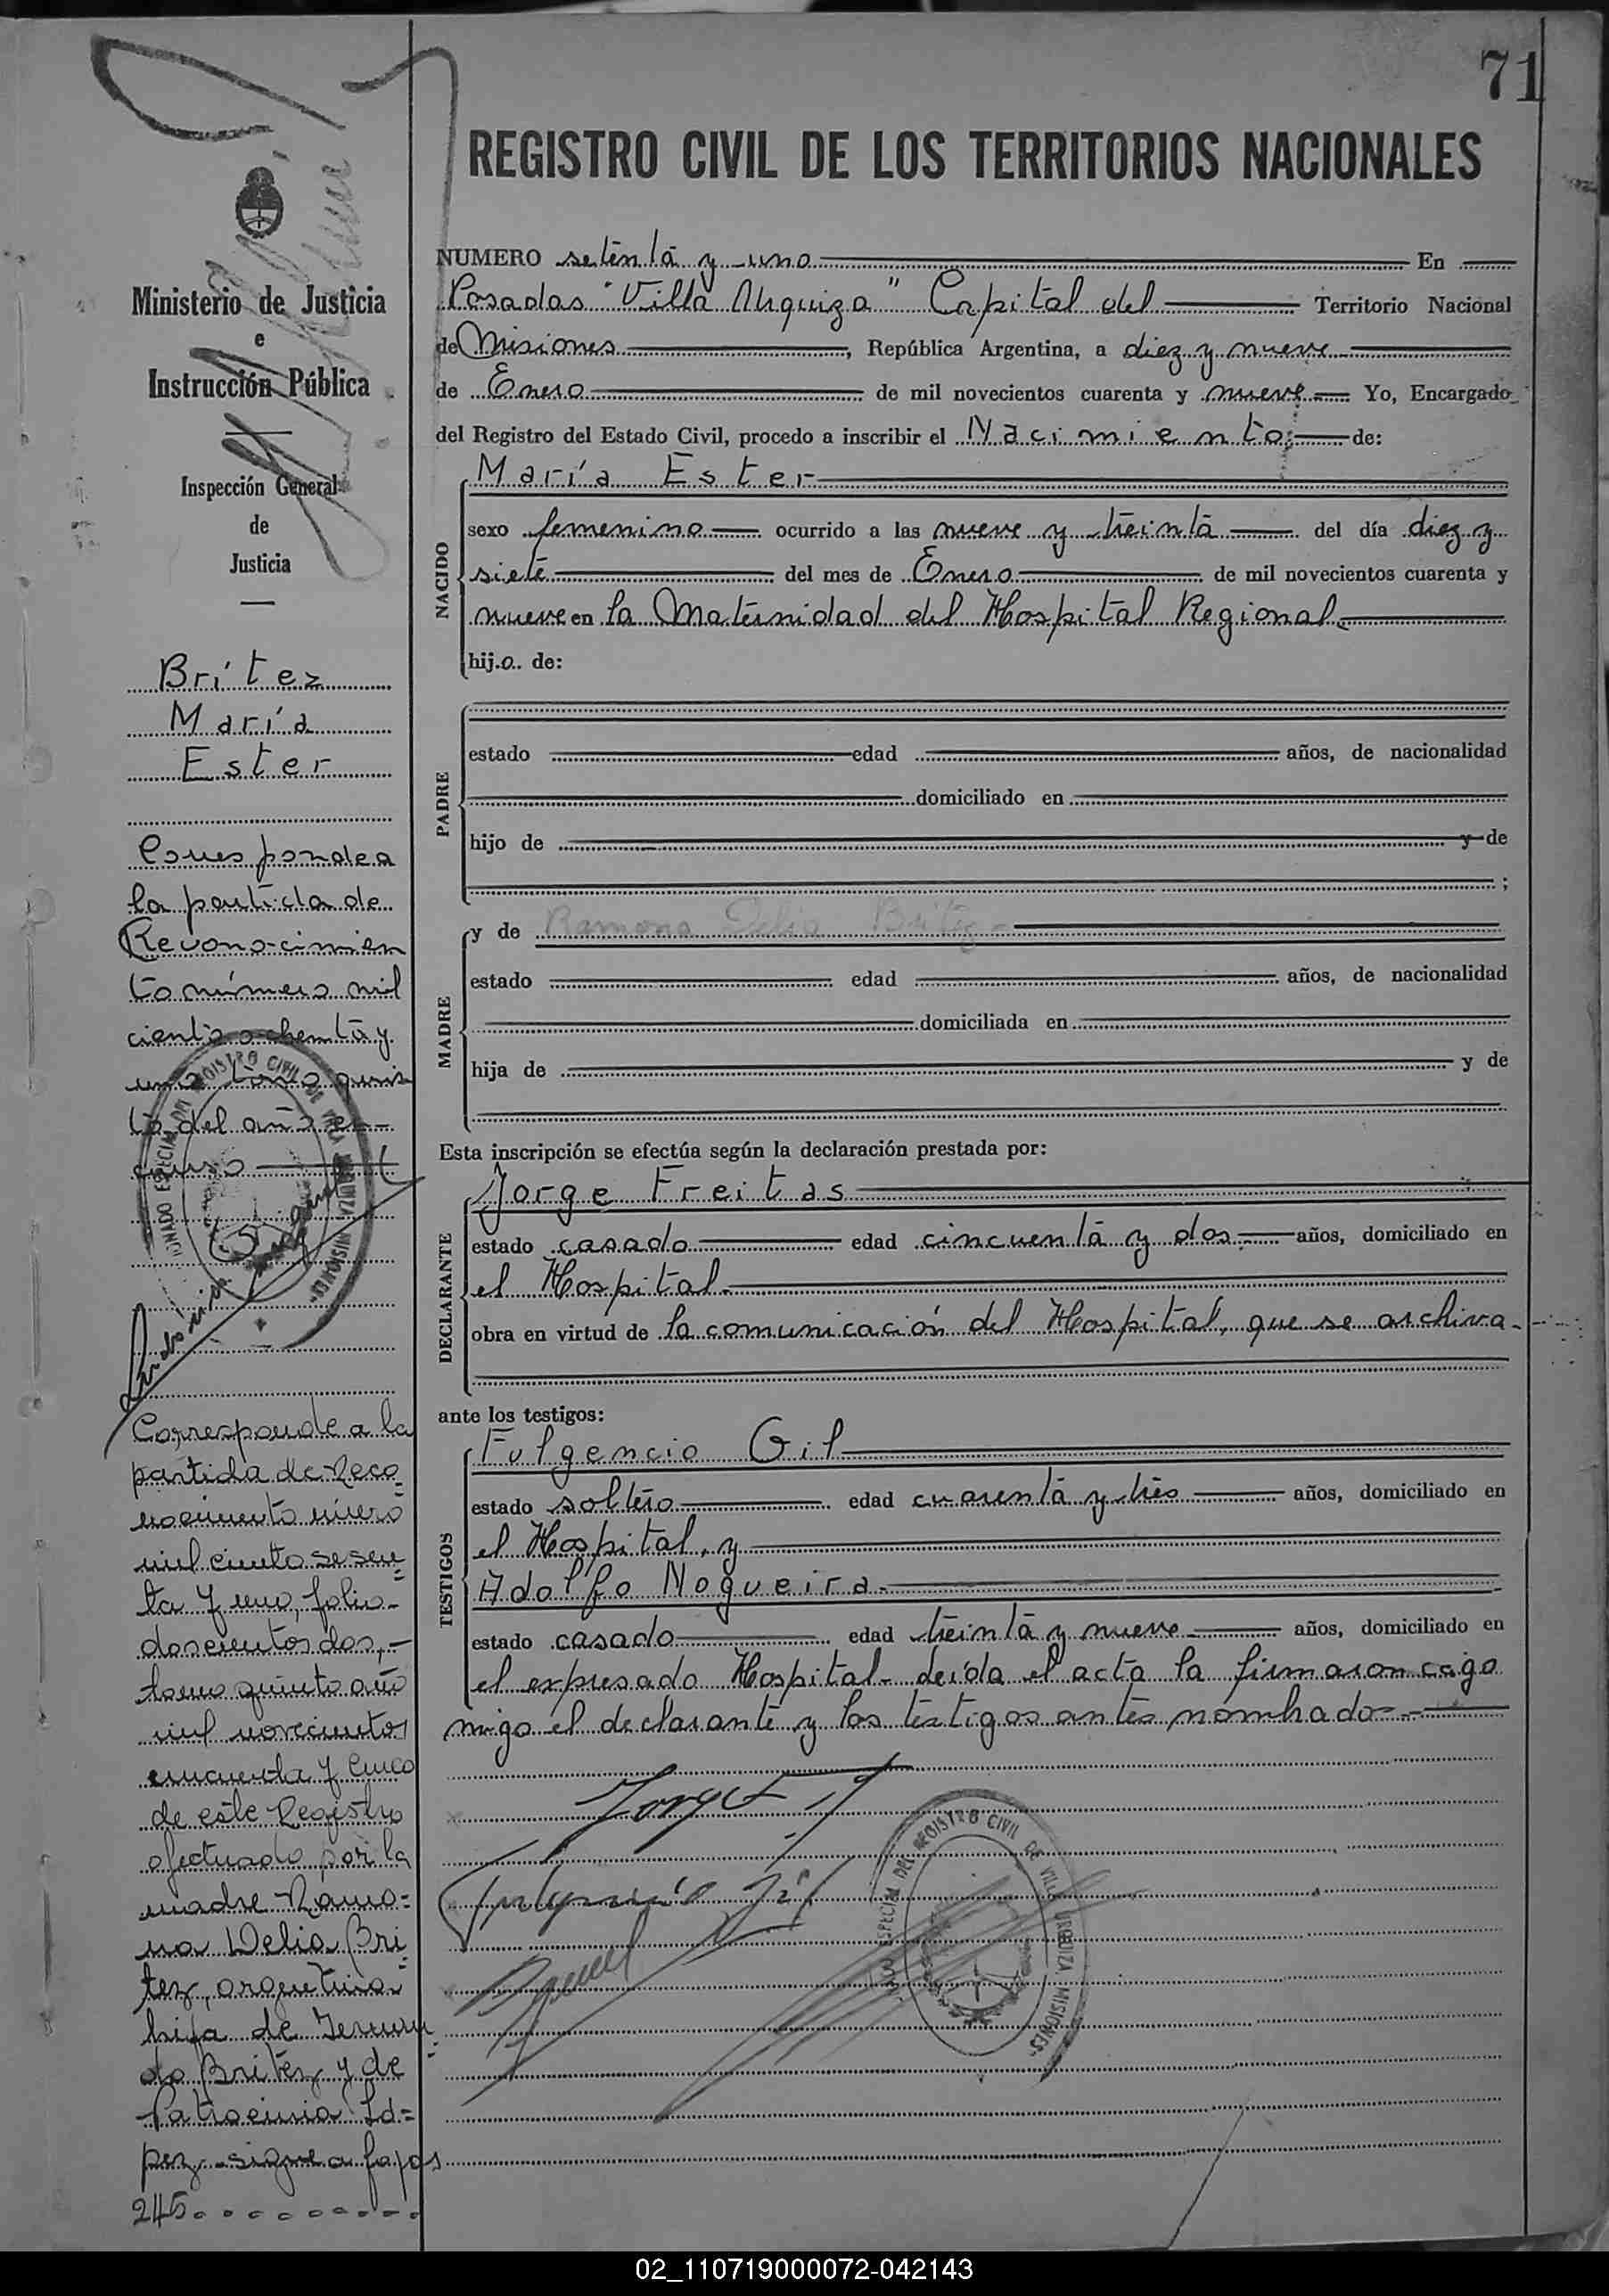 71
REGISTRO CIVIL DE LOS TERRITORIOS NACIONALES
Ministerio de Justicia
e
Instrucción Pública
Inspección General
de
Justicia
Brítez
María
Ester
Corresponde a
la partida de
Reconocimien
to número mil
ciento ochenta y
uno tomo quin
to del año en
curso
Corresponde a la
partida de Reco=
nocimiento número
mil ciento sesen=
ta y uno, folio-
doscientos dos,-
tomo quinto año
mil novecientos
cincuenta y cinco
de este Registro
efectuado por la
madre Ramo=
na Delia Bri=
tez, argentina
hija de
do Britez y de
Patrocinia Ló=
pez - sigue a fojas
245
NUMERO setenta y uno En
Posadas "Villa Urquiza" Capital del Territorio Nacional
de Misiones, República Argentina, a diez y nueve
de Enero de mil novecientos cuarenta y nueve.- Yo, Encargado
del Registro del Estado Civil, procedo a inscribir el Nacimiento: de:
NACIDO
María Ester
sexo femenino ocurrido a las nueve y treinta del día diez y
siete del mes de Enero de mil novecientos cuarenta y
nueve en la Maternidad del Hospital Regional.
hij.a. de:
PADRE
estado edad años, de nacionalidad
domiciliado en
hijo de y de
;
MADRE
y de Ramona Delia Britez
estado edad años, de nacionalidad
domiciliada en
hija de y de
Esta inscripción se efectúa según la declaración prestada por:
DECLARANTE
Jorge Freitas
estado casado edad cincuenta y dos años, domiciliado en
el Hospital
obra en virtud de la comunicación del Hospital, que se archiva.
ante los testigos:
TESTIGOS
Fulgencio Gil
estado soltero edad cuarenta y tres años, domiciliado en
el Hospital, y
Adolfo Nogueira
estado casado edad treinta y nueve años, domiciliado en
el expresado Hospital- leída el acta la firmaron
migo el declarante y los testigos antes nombrados.-
REGISTRO CIVIL DE VILLA URQUIZA MISIONES
02_110719000072-042143